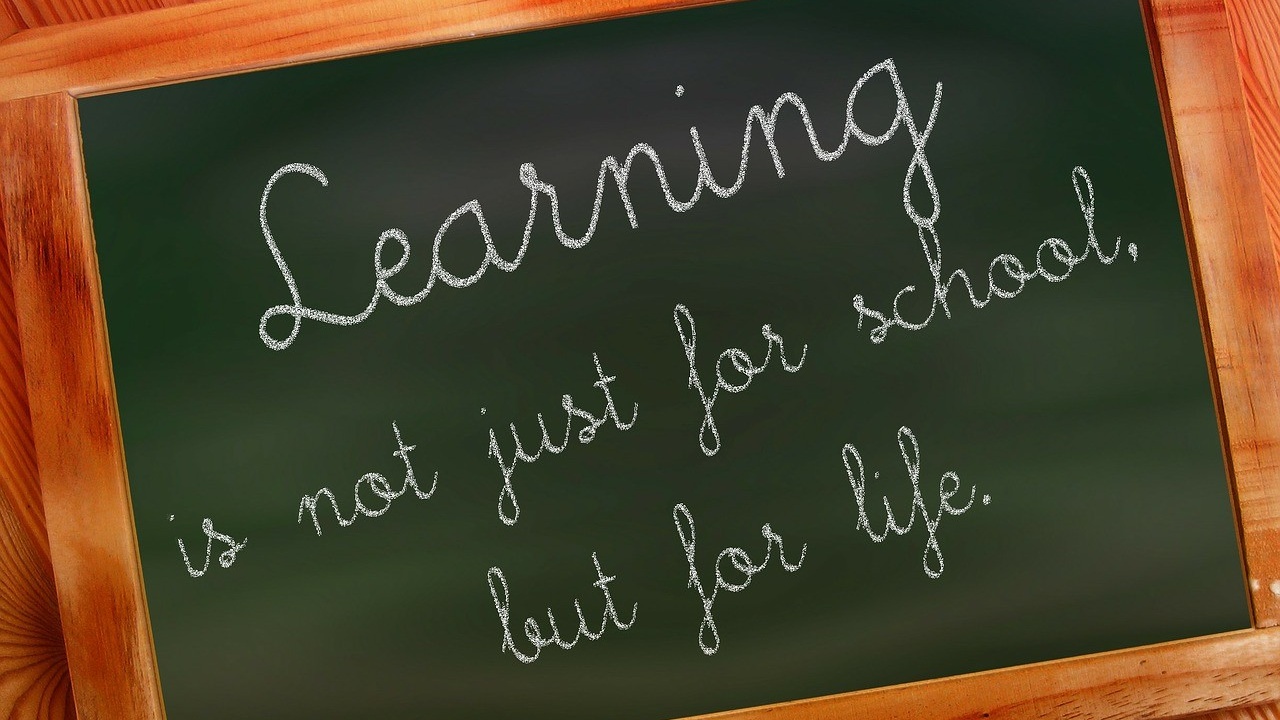 Learning
is not just for school,
but for life.